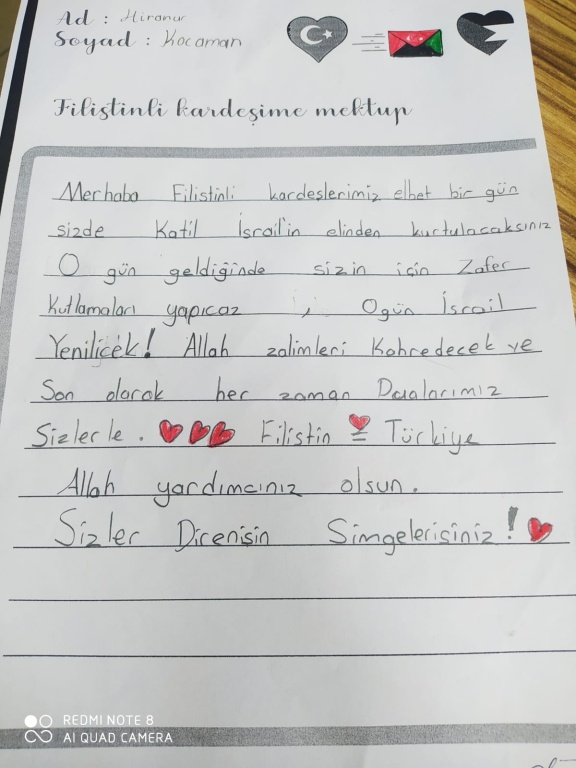 Ad : Hiranur
Soyad : Kocaman
Filistinli kardeşime mektup
Merhaba Filistinli kardeslerimiz elbet bir gün
sizde Katil İsrail'in elinden kurtulacaksınız
O gün geldiğinde sizin için Zafer
Kutlamaları yapıcaz , Ogün İsrail
Yenilicek! Allah zalimleri Kahredecek ve
Son olarak her zaman Dualarımız
Sizlerle . Filistin = Türkiye
Allah yardımcınız olsun.
Sizler Direnişin Simgelerisiniz!
REDMI NOTE 8
AI QUAD CAMERA